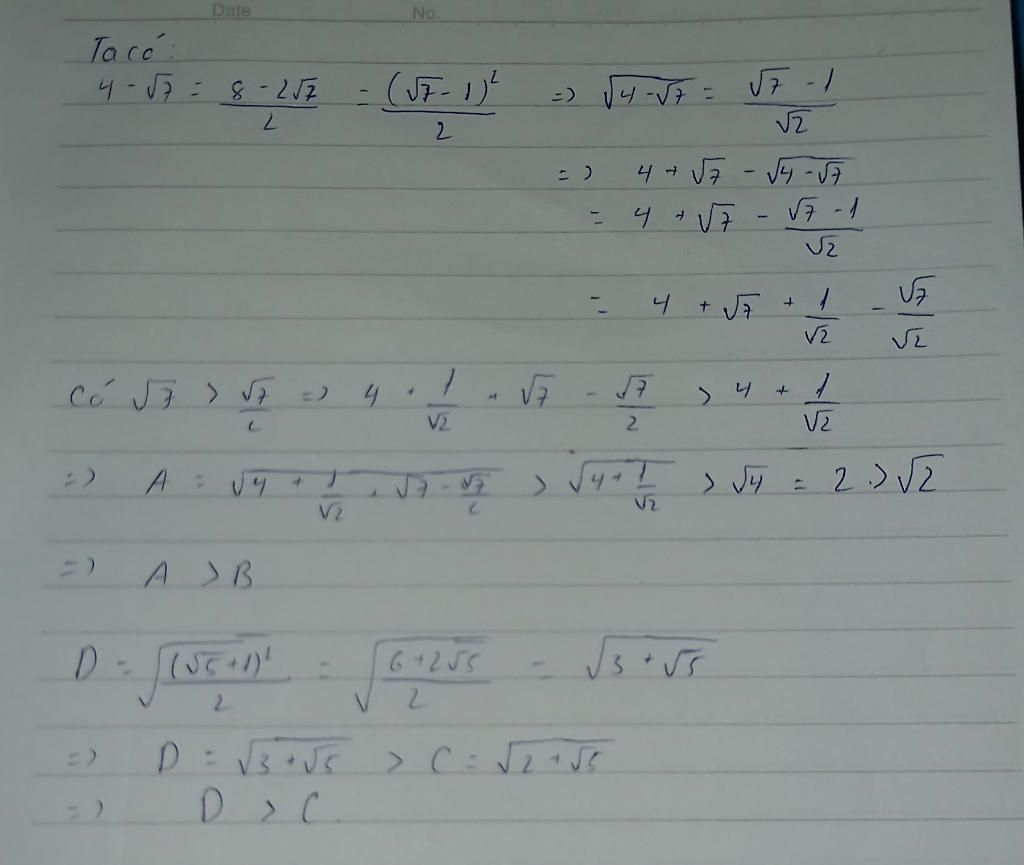 Date No.
Ta có:
4 - √7 = (8 - 2√7)/2 = (√7 - 1)²/2 => √(4 - √7) = (√7 - 1)/√2
=> 4 + √7 - √(4 - √7)
= 4 + √7 - (√7 - 1)/√2
= 4 + √7 + 1/√2 - √7/√2
Có √7 > √7/2 => 4 + 1/√2 + √7 - √7/2 > 4 + 1/√2
=> A = √(4 + 1/√2 + √7 - √7/2) > √(4 + 1/√2) > √4 = 2 > √2
=> A > B
D = √((√5 + 1)²/2) = √((6 + 2√5)/2) = √(3 + √5)
=> D = √(3 + √5) > C = √(2 + √5)
=> D > C.